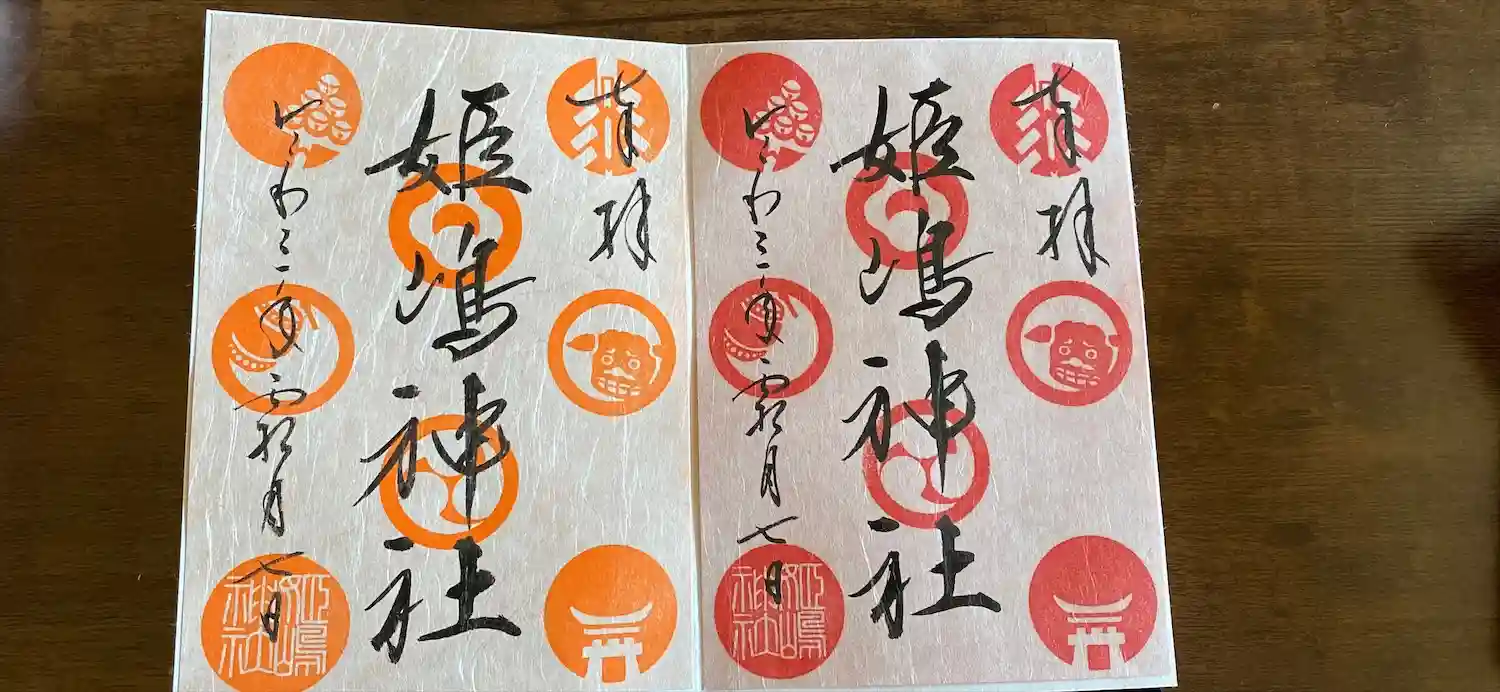 奉拝
姫嶋神社
令和三年霜月七日
姫嶋神社
奉拝
姫嶋神社
令和三年霜月七日
姫嶋神社